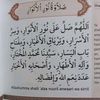 صَلَاةُ نُورِ الْأَنْوَارِ
اَللّٰهُمَّ صَلِّ عَلَى نُورِ الْأَنْوَارِ،
وَسِرِّ الْأَسْرَارِ، وَتِرْيَاقِ الْأَغْيَارِ، وَمِفْتَاحِ
بَابِ الْيَسَارِ، سَيِّدِنَا مُحَمَّدٍ الْمُخْتَارِ،
وَآلِهِ الْأَطْهَارِ، وَأَصْحَابِهِ الْأَخْيَارِ،
عَدَدَ نِعَمِ اللهِ وَإِفْضَالِهِ.
shalli 'alaa nuuril anwaari wa sirril